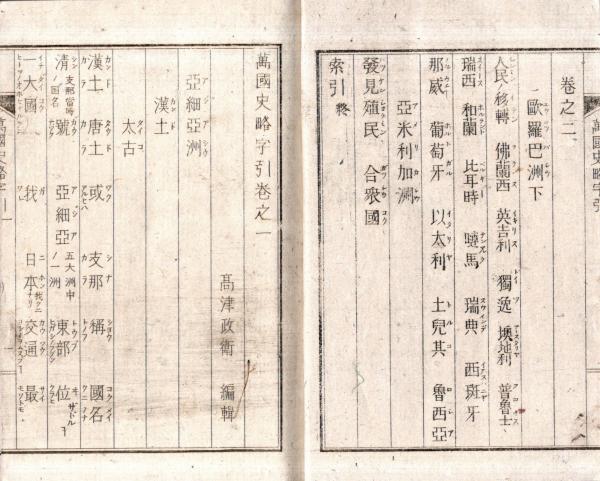 卷之二
歐羅巴洲下
人民ノ移轉 佛蘭西 英吉利 獨逸 墺地利 普魯士
瑞西 和蘭 比耳時 嗹馬 瑞典 西斑牙
那威 葡萄牙 以太利 土兒其 魯西亞
亞米利加洲
發見殖民 合衆國
索引 終
萬國史略字引
萬國史略字引卷之一
髙津政衛 編輯
亞細亞洲
漢土
太古
漢土 唐土 或 支那 稱 國名
清 支那當時ノ国名 號 亞細亞 五大洲中ノ一洲 東部 位
一大國 我 日本 交通 最
萬國史略字引 一